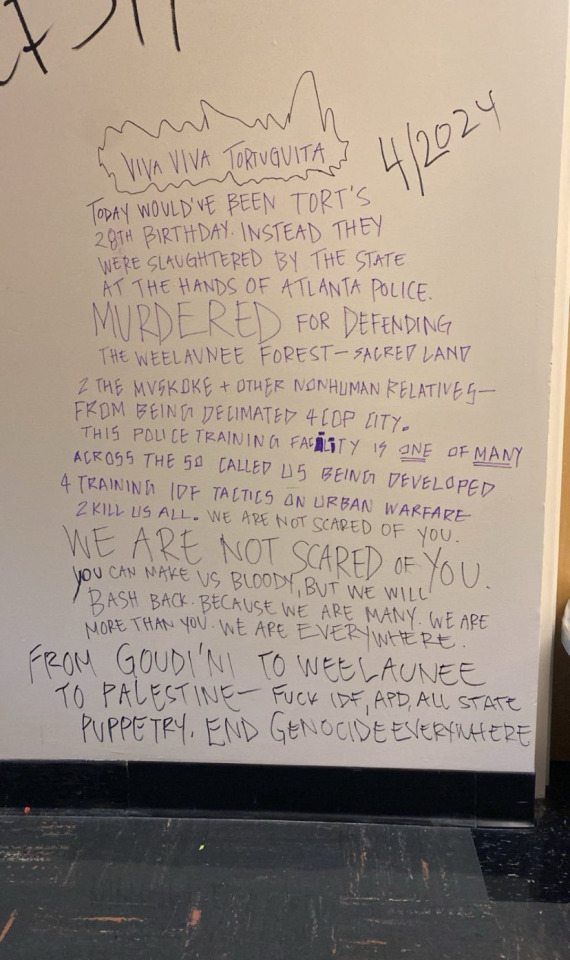 VIVA VIVA TORTUGUITA
4/2024
TODAY WOULD'VE BEEN TORT'S
28TH BIRTHDAY. INSTEAD THEY
WERE SLAUGHTERED BY THE STATE
AT THE HANDS OF ATLANTA POLICE.
MURDERED FOR DEFENDING
THE WEELAUNEE FOREST—SACRED LAND
2 THE MVSKOKE + OTHER NONHUMAN RELATIVES—
FROM BEING DECIMATED 4 COP CITY.
THIS POLICE TRAINING FACILITY IS ONE OF MANY
ACROSS THE 50 CALLED US BEING DEVELOPED
4 TRAINING IDF TACTICS ON URBAN WARFARE
2 KILL US ALL. WE ARE NOT SCARED OF YOU.
WE ARE NOT SCARED OF YOU.
YOU CAN MAKE US BLOODY, BUT WE WILL
BASH BACK. BECAUSE WE ARE MANY. WE ARE
MORE THAN YOU. WE ARE EVERYWHERE.
FROM GOUDI'NI TO WEELAUNEE
TO PALESTINE— FUCK IDF, APD, ALL STATE
PUPPETRY. END GENOCIDE EVERYWHERE